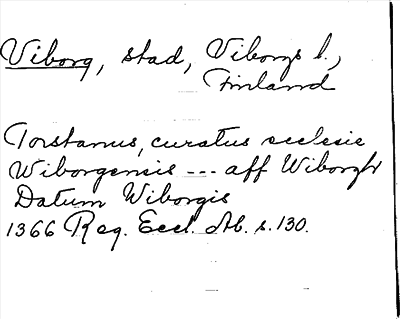 Viborg, stad, Viborgs l.,
Finland
Torstanus, curatus ecclesie
Wiborgensis --- aff Wiborgh
Datum Wiborgis
1366 Reg. Eccl. Ab. s. 130.